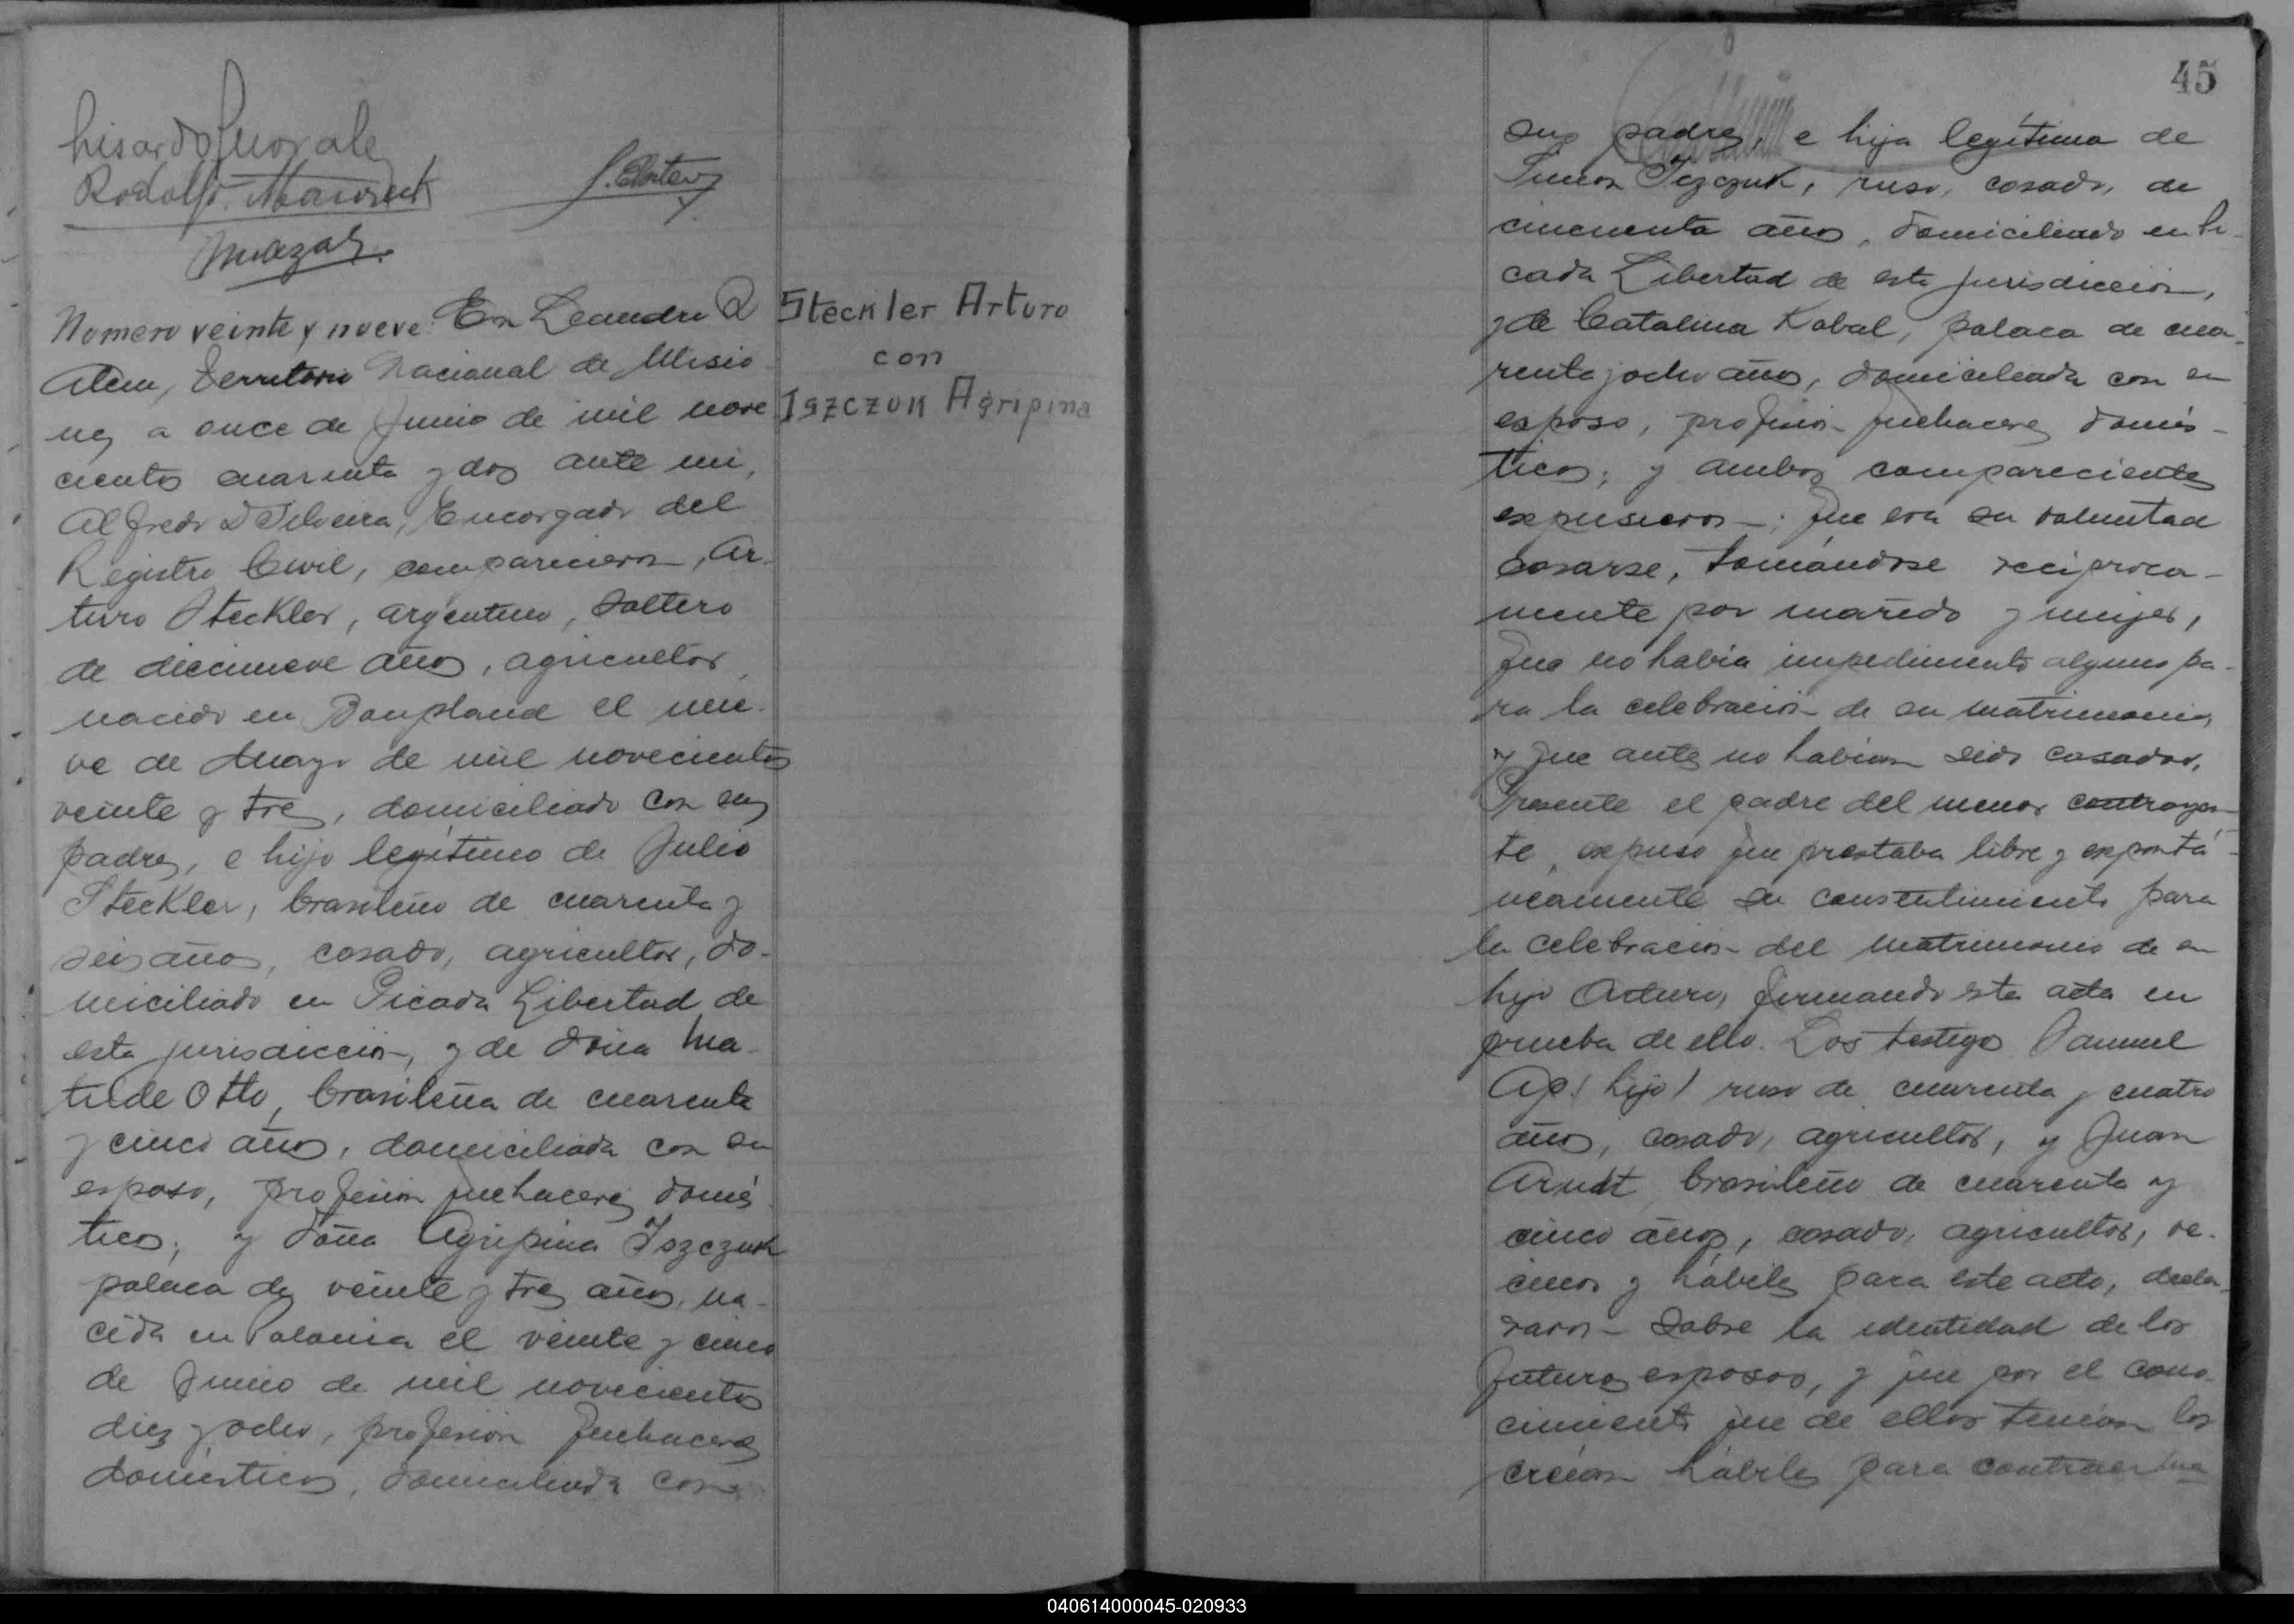 Rodolfo
Numero veinte y nueve. En Leandro N
Alem, Territorio Nacional de Misio
nes a once de Junio de mil nove
cientos cuarenta y dos ante mi,
Alfredo D Silveira, Encargado del
Registro Civil, comparecieron, Ar-
turo Steckler, argentino, soltero
de diecinueve años, agricultor,
nacido en Bonpland el nue-
ve de Mayo de mil novecientos
veinte y tres, domiciliado con sus
padres, e hijo legítimo de Julio
Steckler, brasileño de cuarenta y
seis años, casado, agricultor, do-
miciliado en Picada Libertad de
esta jurisdicción, y de doña Ma-
tilde Otto, brasileña de cuarenta
y cinco años, domiciliada con su
esposo, profesion quehaceres domés
ticos; y doña Agripina Iszczuk
polaca de veinte y tres años, na-
cida en Polonia el veinte y cinco
de Junio de mil novecientos
diez y ocho, profesion quehaceres
domésticos, domiciliada con
Steckler Arturo
con
Iszczuk Agripina
45
sus padres, e hija legítima de
Simon Iszczuk, ruso, casado, de
cincuenta años, domiciliado en Pi-
cada Libertad de esta jurisdiccion,
y de Catalina Kobal, polaca de cua-
renta y ocho años, domiciliada con su
esposo, profesion quehaceres domés-
ticos; y ambos comparecientes
expusieron: que era su voluntad
casarse, tomándose reciproca-
mente por marido y mujer,
que no habia impedimento alguno pa-
ra la celebracion de su matrimonio,
y que antes no habian sido casados.
Presente el padre del menor contrayen-
te, expuso que prestaba libre y espontá-
neamente su consentimiento para
la celebracion del matrimonio de su
hijo Arturo, firmando esta acta en
prueba de ello. Los testigos Samuel
Ap (hijo) ruso de cuarenta y cuatro
años, casado, agricultor, y Juan
Arndt brasileño de cuarenta y
cinco años, casado, agricultor, ve-
cinos y hábiles para este acto, decla-
raron sobre la identidad de los
futuros esposos, y que por el cono-
cimiento que de ellos tenian los
creian hábiles para contraer ma
040614000045-020933